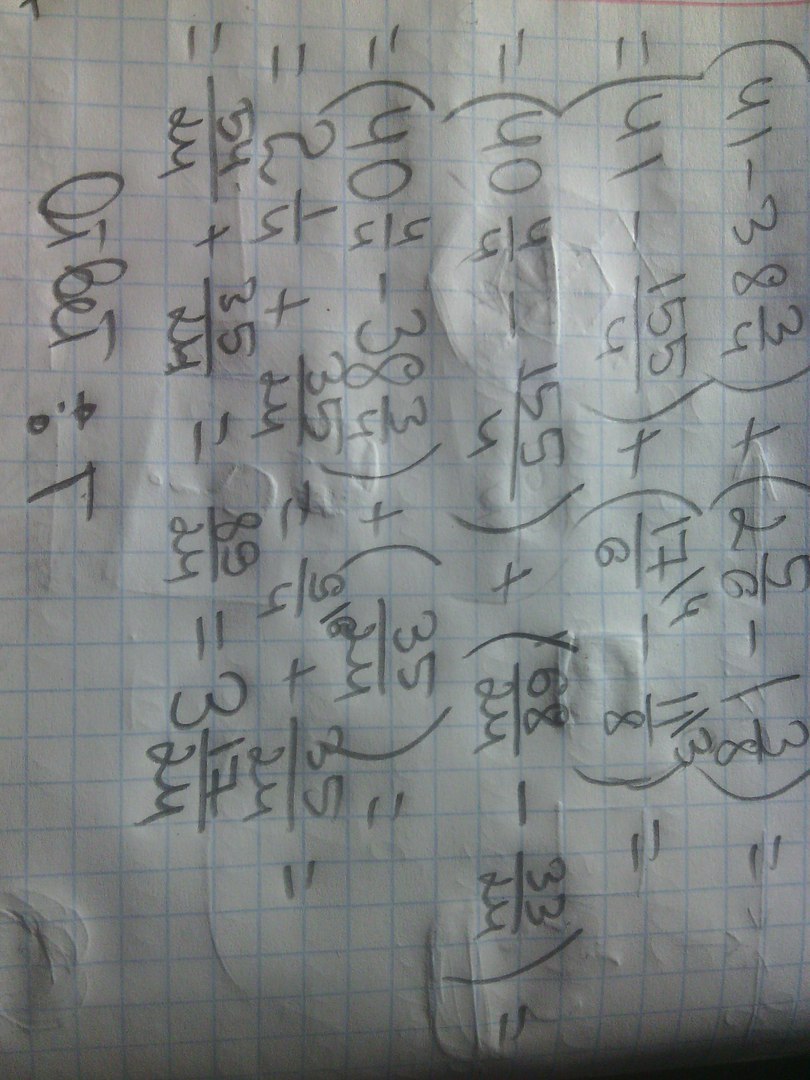 (41 - 38 3/4) + (2 5/6 - 1 3/8) =
= (41 - 155/4) + (17/6 \4 - 11/8 \3) =
= (40 4/4 - 155/4) + (68/24 - 33/24) =
= (40 4/4 - 38 3/4) + (35/24) =
= 2 1/4 + 35/24 = 9/4 \6 + 35/24 =
= 54/24 + 35/24 = 89/24 = 3 17/24
Ответ: